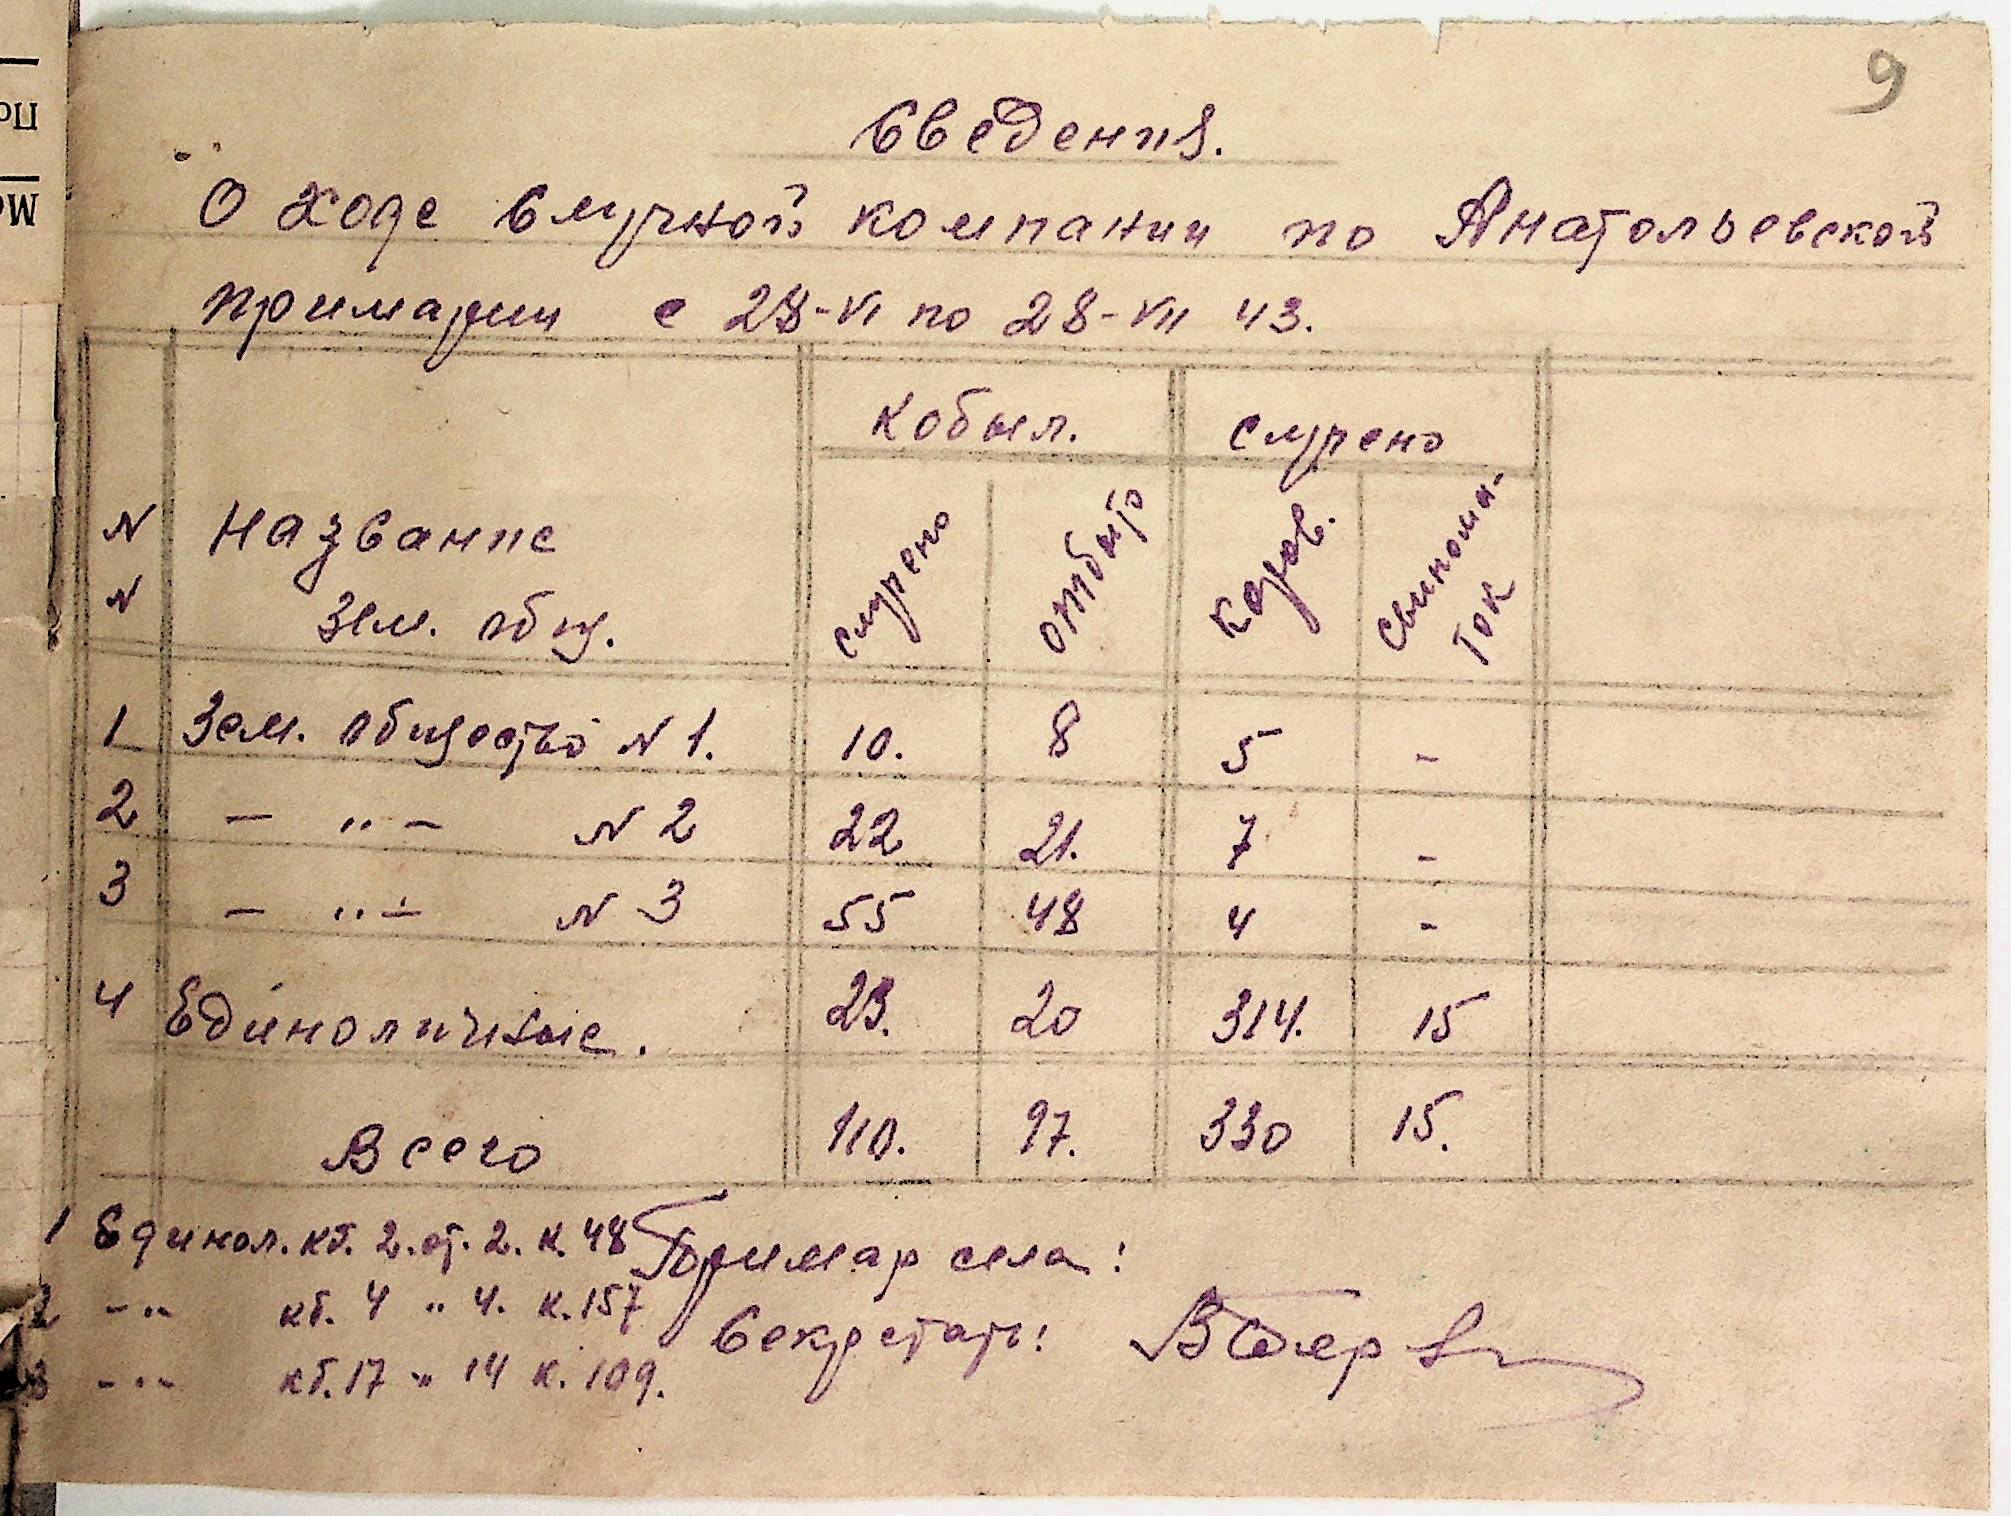 9
Сведения.
О ходе Случной компании по Анатольевской
примарии с 28-VI по 28-VII 43.
N N
Название
Зем. общ.
Кобыл.
случено
отбыто
случено
Коров.
свиноматок
1 Зем. общество N 1. 10. 8 5 -
2 - " - N 2 22 21. 7 -
3 - " - N 3 55 48 4 -
4 Единоличные. 23. 20 314. 15
Всего 110. 97. 330 15.
1 Единол. кб. 2. от. 2. к. 48
2 - " - кб. 4 " 4. к. 157
3 - " - кб. 17 " 14 к. 109.
Примар села:
Секретарь:
По
Мо